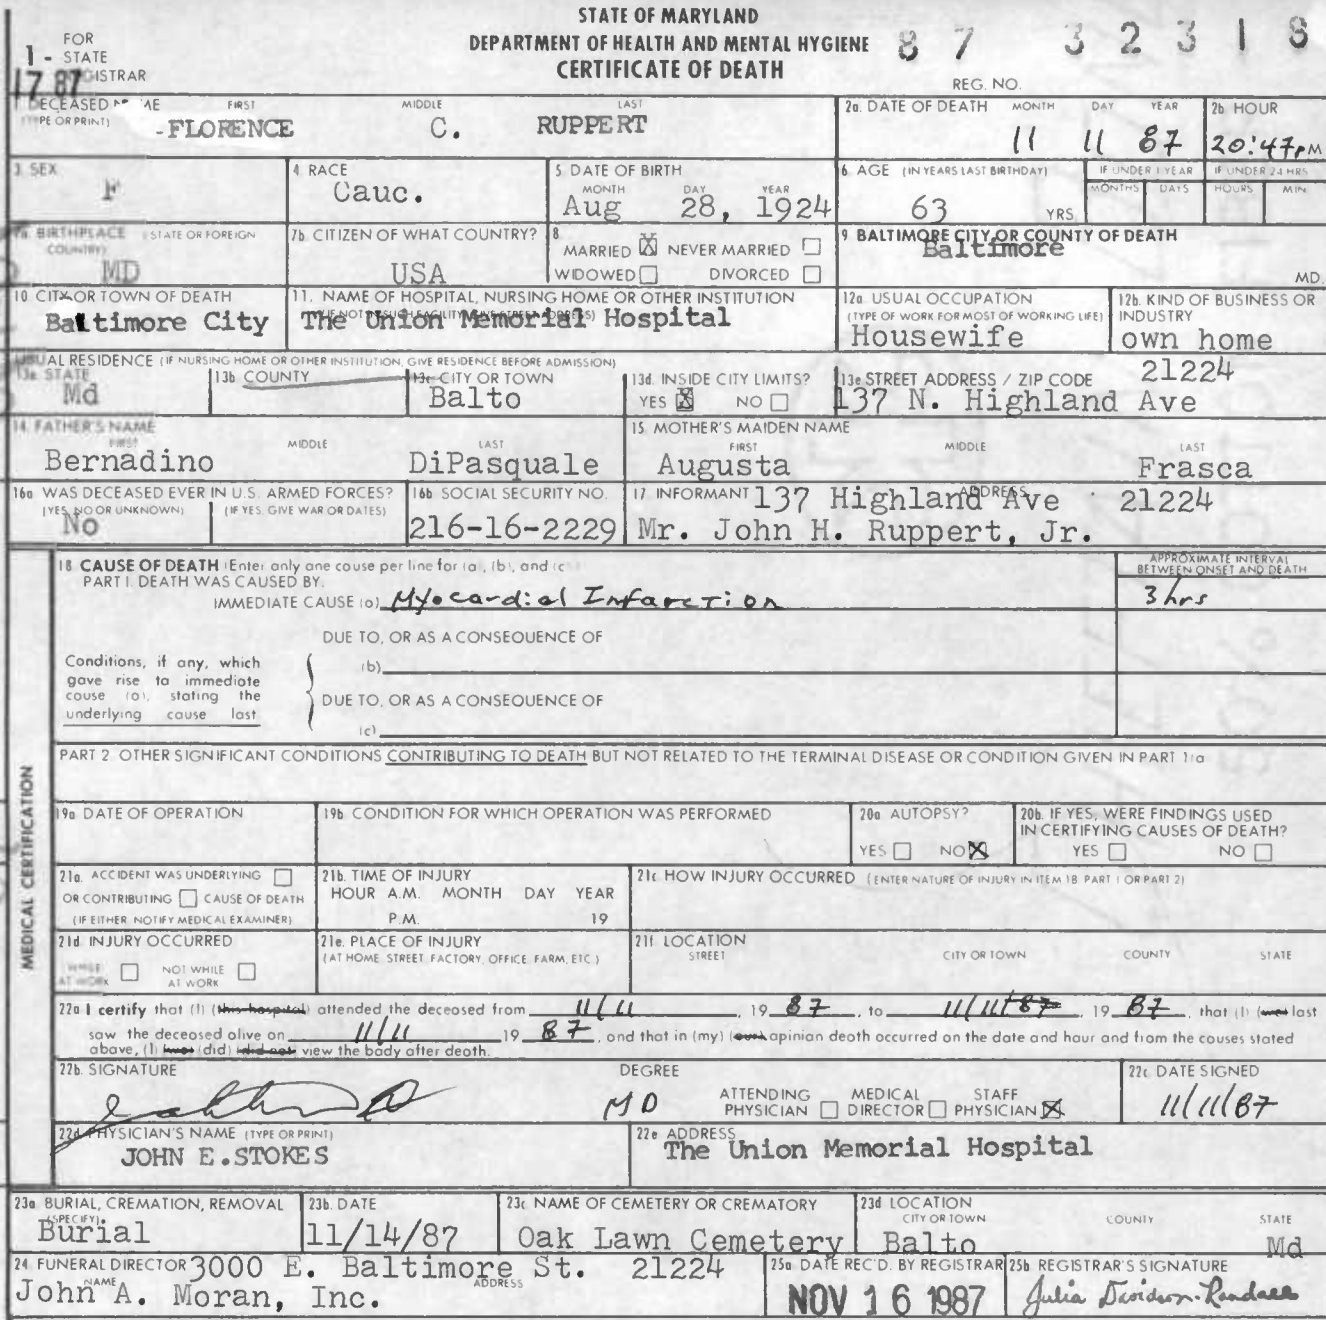 STATE OF MARYLAND
DEPARTMENT OF HEALTH AND MENTAL HYGIENE
CERTIFICATE OF DEATH
87 32318
REG. NO.
1 - FOR STATE REGISTRAR
17 87
1 DECEASED NAME (TYPE OR PRINT) FIRST MIDDLE LAST
-FLORENCE C. RUPPERT
2a. DATE OF DEATH MONTH DAY YEAR
11 11 87
2b HOUR
20:47PM
3 SEX
F
4 RACE
Cauc.
5 DATE OF BIRTH
MONTH DAY YEAR
Aug 28, 1924
6 AGE (IN YEARS LAST BIRTHDAY)
63 YRS
IF UNDER 1 YEAR
MONTHS DAYS
IF UNDER 24 HRS
HOURS MIN
7a. BIRTHPLACE (STATE OR FOREIGN COUNTRY)
MD
7b. CITIZEN OF WHAT COUNTRY?
USA
8
MARRIED X NEVER MARRIED
WIDOWED DIVORCED
9 BALTIMORE CITY OR COUNTY OF DEATH
Baltimore
MD.
10 CITY OR TOWN OF DEATH
Baltimore City
11. NAME OF HOSPITAL, NURSING HOME OR OTHER INSTITUTION
(IF NOT IN SUCH FACILITY, GIVE STREET ADDRESS)
The Union Memorial Hospital
12a. USUAL OCCUPATION
(TYPE OF WORK FOR MOST OF WORKING LIFE)
Housewife
12b. KIND OF BUSINESS OR INDUSTRY
own home
USUAL RESIDENCE (IF NURSING HOME OR OTHER INSTITUTION, GIVE RESIDENCE BEFORE ADMISSION)
13a STATE
Md
13b COUNTY
13c CITY OR TOWN
Balto
13d. INSIDE CITY LIMITS?
YES X NO
13e STREET ADDRESS / ZIP CODE
21224
137 N. Highland Ave
14. FATHER'S NAME
FIRST MIDDLE LAST
Bernadino DiPasquale
15 MOTHER'S MAIDEN NAME
FIRST MIDDLE LAST
Augusta Frasca
16a WAS DECEASED EVER IN U.S. ARMED FORCES?
(YES, NO OR UNKNOWN) (IF YES, GIVE WAR OR DATES)
No
16b SOCIAL SECURITY NO.
216-16-2229
17 INFORMANT ADDRESS
137 Highland Ave 21224
Mr. John H. Ruppert, Jr.
MEDICAL CERTIFICATION
18 CAUSE OF DEATH (Enter only one cause per line for (a), (b), and (c)
PART I. DEATH WAS CAUSED BY.
APPROXIMATE INTERVAL BETWEEN ONSET AND DEATH
IMMEDIATE CAUSE (a) Myocardial Infarction
3 hrs
DUE TO, OR AS A CONSEQUENCE OF
(b)
Conditions, if any, which gave rise to immediate cause (a), stating the underlying cause last
DUE TO, OR AS A CONSEQUENCE OF
(c)
PART 2 OTHER SIGNIFICANT CONDITIONS CONTRIBUTING TO DEATH BUT NOT RELATED TO THE TERMINAL DISEASE OR CONDITION GIVEN IN PART 1(a
19a DATE OF OPERATION
19b CONDITION FOR WHICH OPERATION WAS PERFORMED
20a AUTOPSY?
YES NO X
20b. IF YES, WERE FINDINGS USED IN CERTIFYING CAUSES OF DEATH?
YES NO
21a. ACCIDENT WAS UNDERLYING
OR CONTRIBUTING CAUSE OF DEATH
(IF EITHER NOTIFY MEDICAL EXAMINER)
21b. TIME OF INJURY
HOUR A.M. MONTH DAY YEAR
P.M. 19
21c HOW INJURY OCCURRED (ENTER NATURE OF INJURY IN ITEM 18 PART 1 OR PART 2)
21d INJURY OCCURRED
WHILE AT WORK NOT WHILE AT WORK
21e. PLACE OF INJURY
(AT HOME STREET, FACTORY, OFFICE, FARM, ETC.)
21f LOCATION
STREET CITY OR TOWN COUNTY STATE
22a I certify that (I) (this hospital) attended the deceased from 11/11, 19 87, to 11/11/87, 19 87, that (I) (we) last
saw the deceased alive on 11/11 19 87, and that in (my) (our) opinion death occurred on the date and hour and from the causes stated
above, (I) (we) (did) (did not) view the body after death.
22b. SIGNATURE
DEGREE
MD
ATTENDING PHYSICIAN MEDICAL DIRECTOR STAFF PHYSICIAN X
22c DATE SIGNED
11/11/87
22d PHYSICIAN'S NAME (TYPE OR PRINT)
JOHN E.STOKES
22e ADDRESS
The Union Memorial Hospital
23a BURIAL, CREMATION, REMOVAL
(SPECIFY)
Burial
23b. DATE
11/14/87
23c NAME OF CEMETERY OR CREMATORY
Oak Lawn Cemetery
23d LOCATION
CITY OR TOWN COUNTY STATE
Balto Md
24 FUNERAL DIRECTOR
NAME ADDRESS
3000 E. Baltimore St. 21224
John A. Moran, Inc.
25a DATE REC'D. BY REGISTRAR
NOV 16 1987
25b REGISTRAR'S SIGNATURE
Julia Davidson-Randall